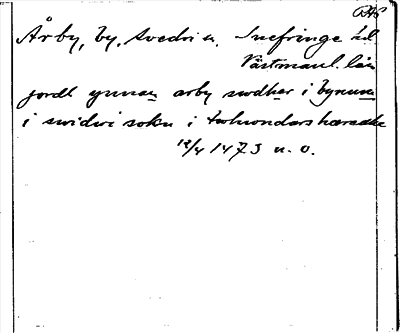 Årby, by, Svedvi sn. Snefringe hd
Västmanl. län
jordh ynnan arby swdher i bynum
i swidwi sokn i twhundars hæradhe
12/4 1473 u. o.